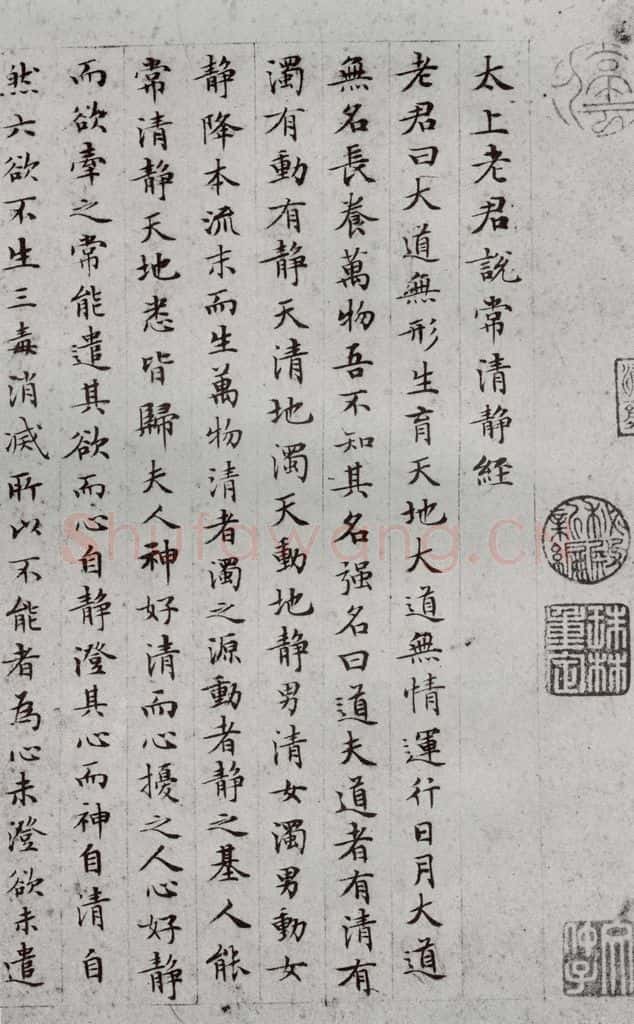 秘殿新編
珠林重定
太上老君說常清静經
老君曰大道無形生育天地大道無情運行日月大道
無名長養萬物吾不知其名强名曰道夫道者有清有
濁有動有静天清地濁天動地静男清女濁男動女
静降本流末而生萬物清者濁之源動者静之基人能
常清静天地悉皆歸夫人神好清而心擾之人心好静
而欲牽之常能遣其欲而心自静澄其心而神自清自
然六欲不生三毒消滅所以不能者為心未澄欲未遣
Shufawang.cn